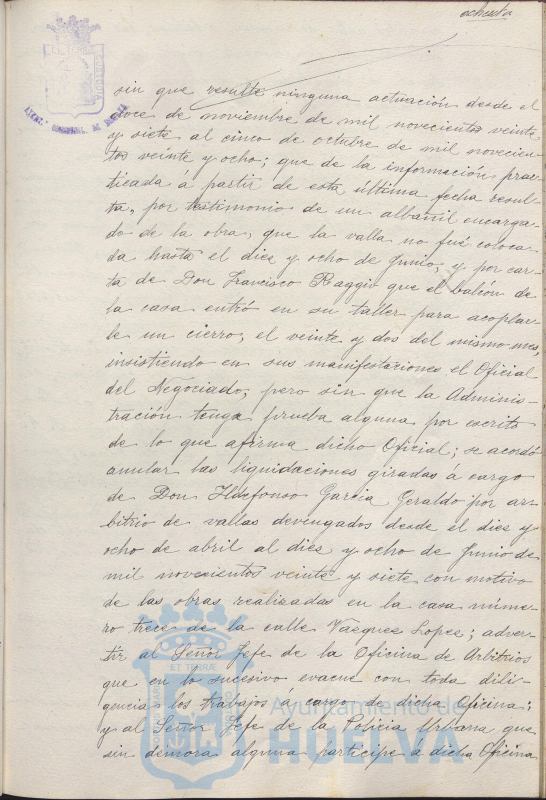 ochenta
sin que resulte ninguna actuación desde el
doce de noviembre de mil novecientos veinte
y siete al cinco de octubre de mil novecien-
tos veinte y ocho; que de la información prac-
ticada á partir de esta última fecha resul-
ta, por testimonio de un albañil encarga-
do de la obra, que la valla no fué coloca-
da hasta el dies y ocho de Junio, y por car-
ta de Don Francisco Raggio que el balcón de
la casa entró en su taller para acoplar-
le un cierro, el veinte y dos del mismo mes,
insistiendo en sus manifestaciones el Oficial
del Negociado; pero sin que la Adminis-
tración tenga prueba alguna por escrito
de lo que afirma dicho Oficial; se acordó
anular las liquidaciones giradas á cargo
de Don Ildefonso Garcia Geraldo por ar-
bitrio de vallas devengados desde el dies y
ocho de abril al dies y ocho de Junio de
mil novecientos veinte y siete con motivo
de las obras realizadas en la casa núme-
ro trece de la calle Vazquez Lopez; adver-
tir al Señor Jefe de la Oficina de Arbitrios
que en lo sucesivo evacue con toda dili-
gencia los trabajos á cargo de dicha Oficina;
y al Señor Jefe de la Policia Urbana que
sin demora alguna participe a dicha Oficina
ET TERRÆ
Ayuntamiento de
HUELVA